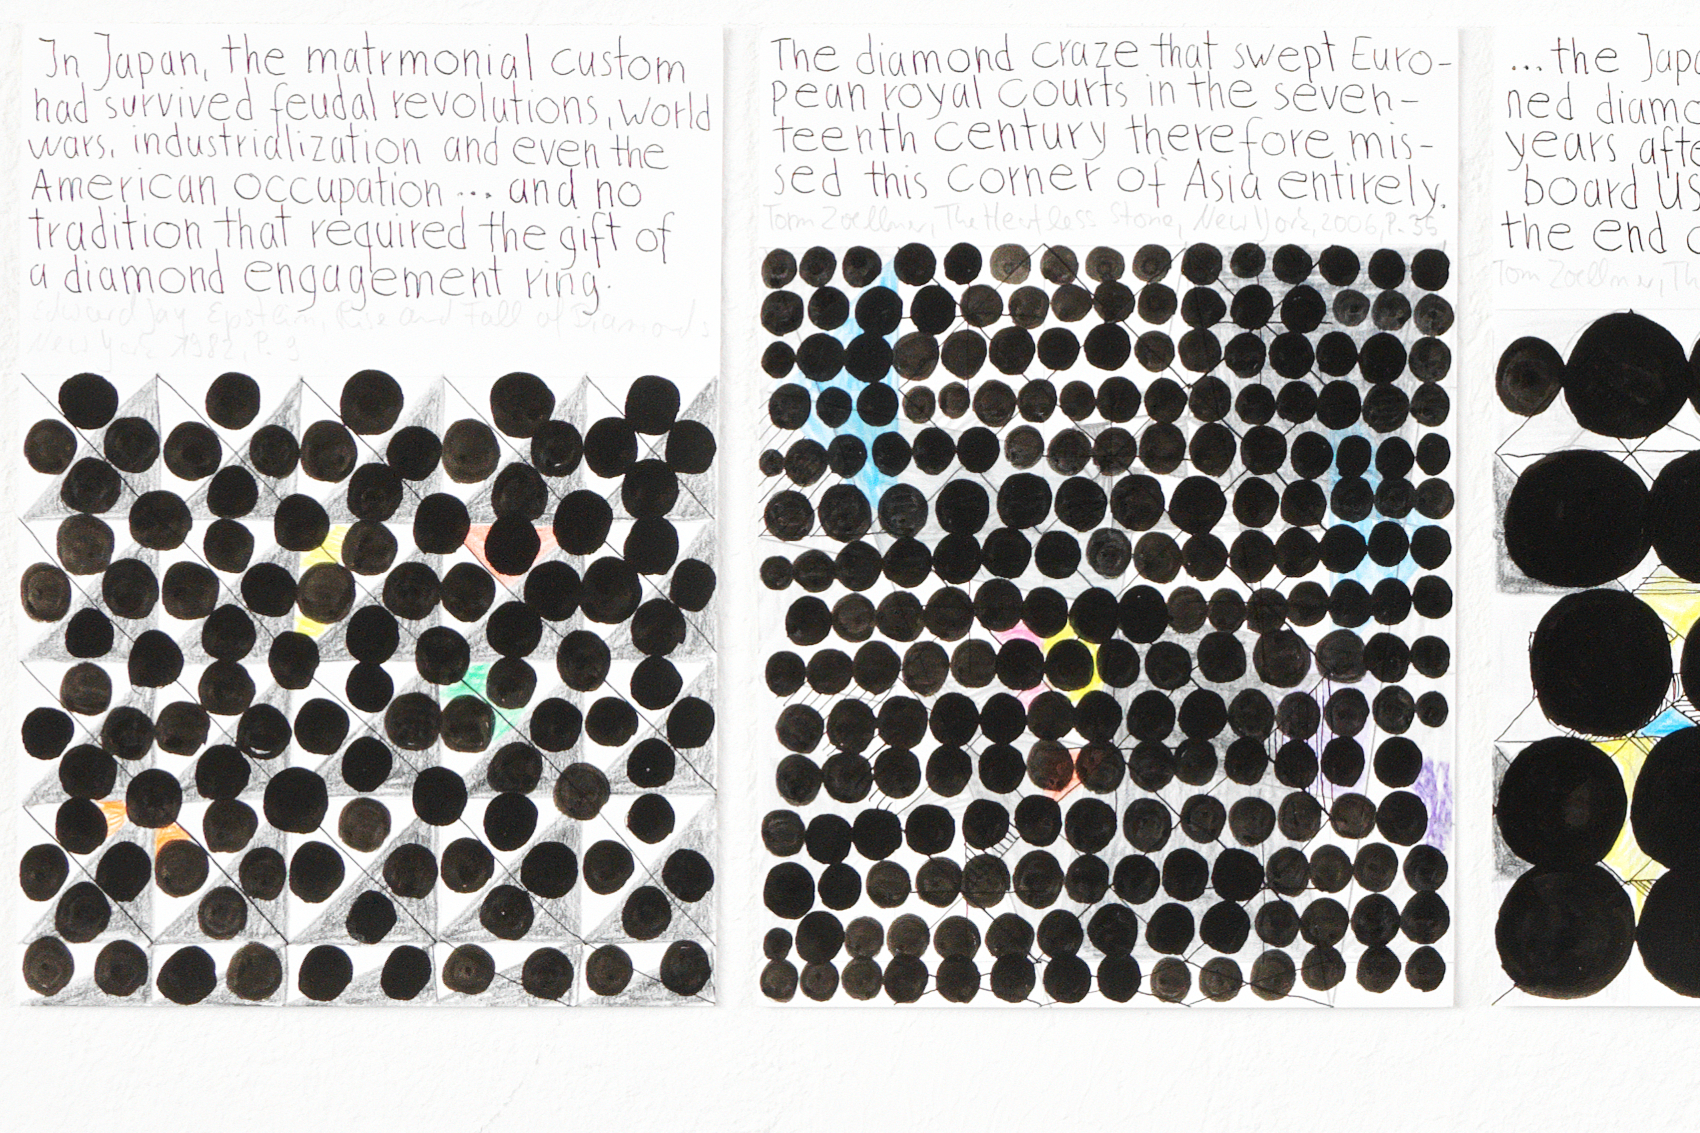 In Japan, the matrmonial custom
had survived feudal revolutions, world
wars, industrialization and even the
American occupation ... and no
tradition that required the gift of
a diamond engagement ring.
Edward Jay Epstein, Rise and Fall of Diamonds
New York 1982, P. 9
The diamond craze that swept Euro-
pean royal courts in the seven-
teenth century therefore mis-
sed this corner of Asia entirely.
Tom Zoellner, The Heartless Stone, New York, 2006, P. 35
...the Japa
ned diamo
years afte
board Us
the end o
Tom Zoellner, Th